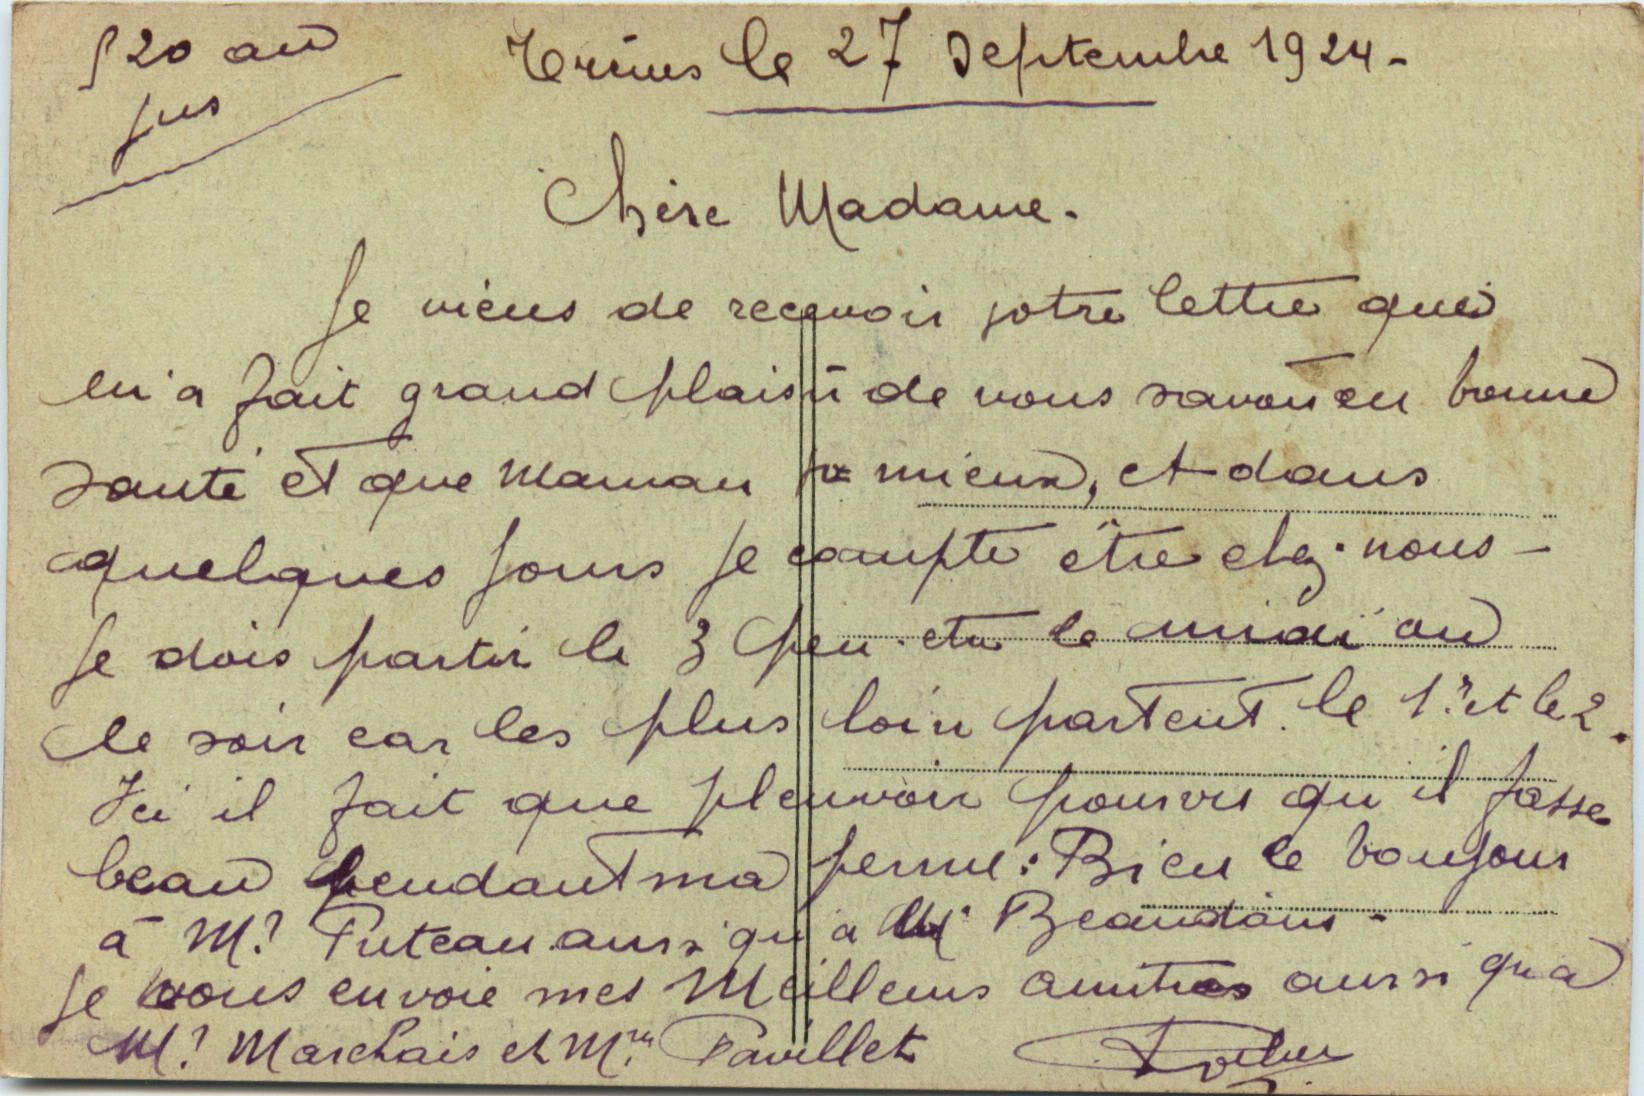 520 au
jus
le 27 Septembre 1924-
Chère Madame.
Je viens de recevoir votre lettre qui
m'a fait grand plaisir de vous savoir en bonne
santé et que Maman va mieux, et dans
quelques jours je compte être chez-nous-
Je dois partir le 3 peu-etre le midi ou
le soir car les plus loin partent. le 1er et le 2.
Ici il fait que pleuvoir pourvus qu'il fasse
beau pendant ma perme: Bien le bonjour
à Mr Puteau aussi qu'à Mr Beaudoins-
Je vous envoie mes Meilleurs amities aussi qu'a
Mr Marchais et Mme Pavillet